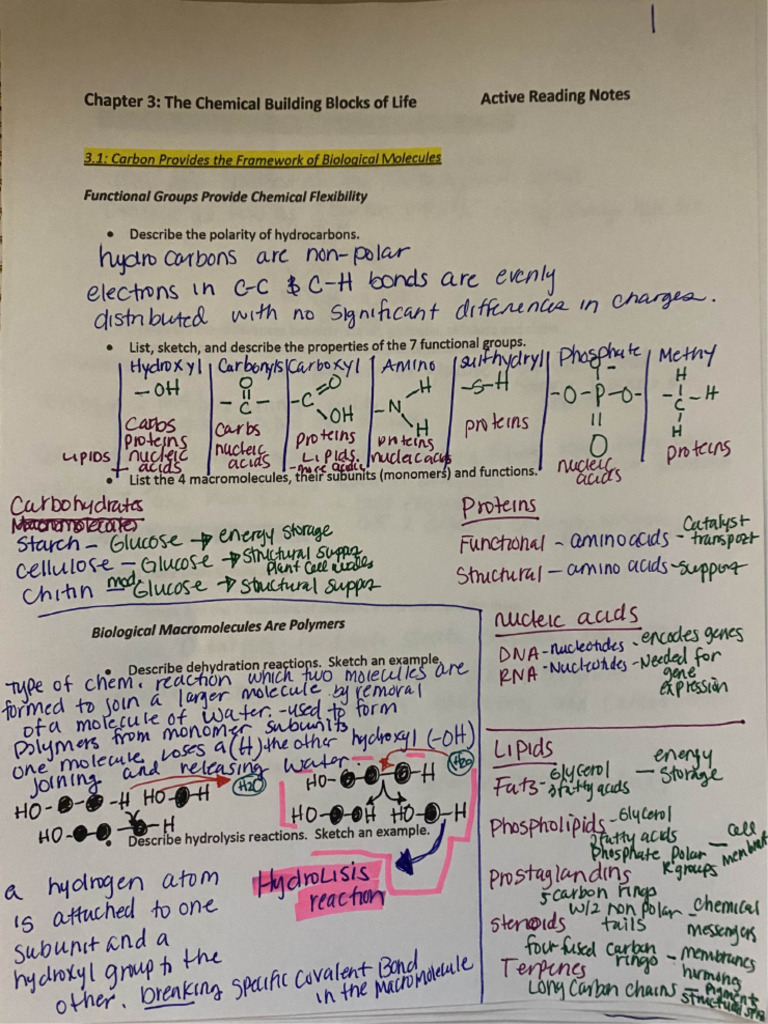 Chapter 3: The Chemical Building Blocks of Life Active Reading Notes
3.1: Carbon Provides the Framework of Biological Molecules
Functional Groups Provide Chemical Flexibility
• Describe the polarity of hydrocarbons.
hydrocarbons are non-polar
electrons in C-C & C-H bonds are evenly
distributed with no significant differences in charges.
• List, sketch, and describe the properties of the 7 functional groups.
Hydroxyl
-OH
Carbs
proteins
nucleic
acids
LIPIDS +
Carbonyls
O
-C-
Carbs
nucleic
acids
Carboxyl
-C
O
OH
proteins
Lipids.
-more acidic
Amino
H
-N
H
proteins
nucleic acids
sulfhydryl
-S-H
proteins
Phosphate
O-
-O-P-O-
O
nucleic
acids
Methy
H
-C-H
H
proteins
• List the 4 macromolecules, their subunits (monomers) and functions.
Carbohydrates
Macromolecules
Starch - Glucose → energy storage
Cellulose - Glucose → Structural Suppor
Plant Cell walls
Chitin - mod Glucose → Structural Suppor
Proteins
Functional - amino acids - Catalyst
transport
Structural - amino acids - support
Biological Macromolecules Are Polymers
• Describe dehydration reactions. Sketch an example.
Type of chem. reaction which two molecules are
formed to join a larger molecule by removal
of a molecule of water. - used to form
Polymers from monomer subunits
one molecule loses a (H) the other hydroxyl (-OH)
joining and releasing water.
HO- -H HO- -H H2O
HO- -H
HO- -H H2O
HO- -OH HO- -H
• Describe hydrolysis reactions. Sketch an example.
HydroLisis
reaction
a hydrogen atom
is attached to one
subunit and a
hydroxyl group to the
other. breaking specific Covalent Bond
in the Macromolecule
nucleic acids
DNA - nucleotides - encodes genes
RNA - Nucleotides - Needed for
gene
expression
Lipids
Fats - Glycerol
3 fatty acids - energy
Storage
Phospholipids - Glycerol
2 fatty acids
Phosphate Polar
R groups - cell
Prostaglandins
5 carbon rings
w/2 non polar
tails - chemical
messengers
steroids
four fused carbon
rings - membranes
hormones
Terpenes
Long Carbon chains - Pigments